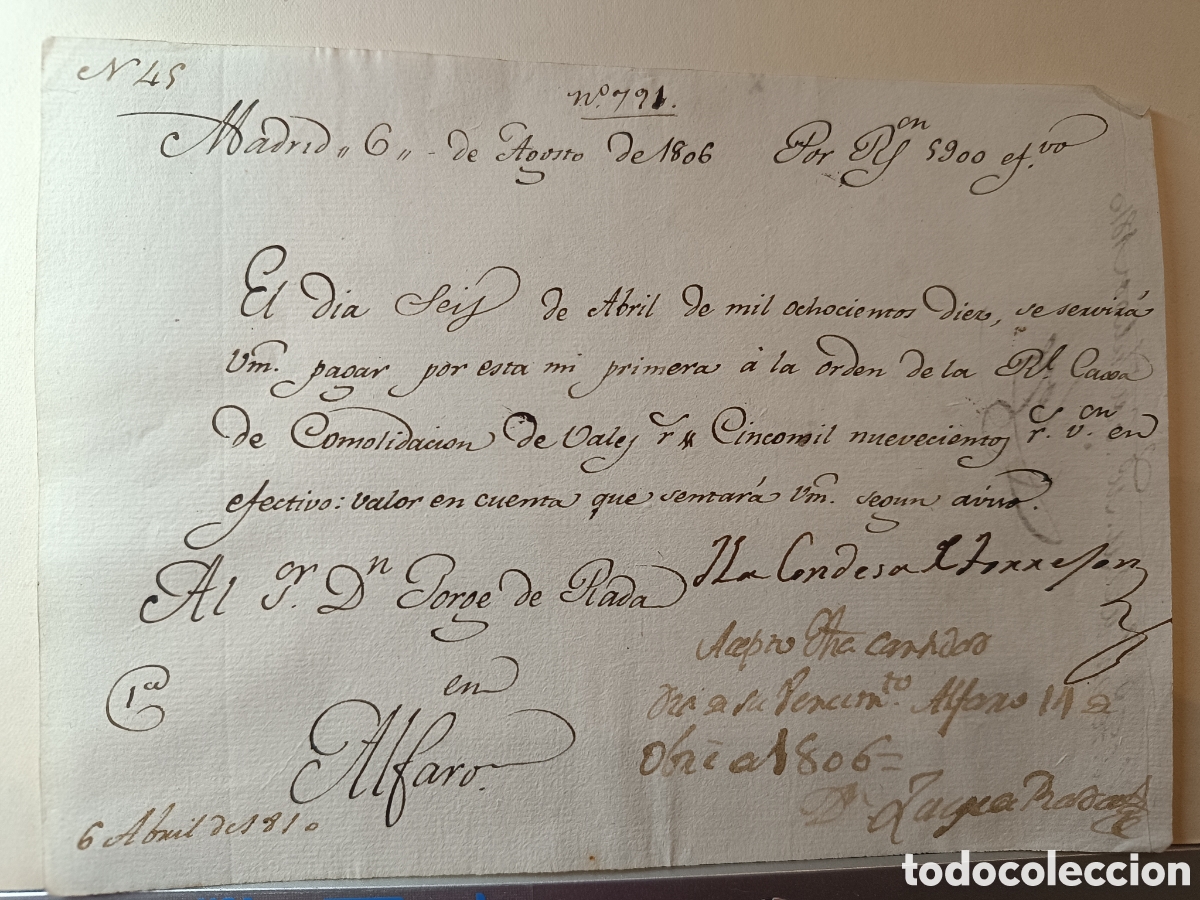 N 45
nº. 791.
Madrid „ 6 „ - de Agosto de 1806 Por Rs cn 5900 ef.vo
El dia Seis de Abril de mil ochocientos diez, se servirá
Vm. pagar por esta mi primera á la orden de la Rl. Caxa
de Consolidacion de Vales rs Cincomil nuevecientos rs. vn. en
efectivo: valor en cuenta que sentará Vm. segun aviso.
Al Sr. Dn Jorge de Rada La Condesa
Acepto cantidad
1ª en
a su Vencimto. Alfaro 14 de
Alfaro.
1806=
6 Abril de 1810
Dn Rada
todocoleccion